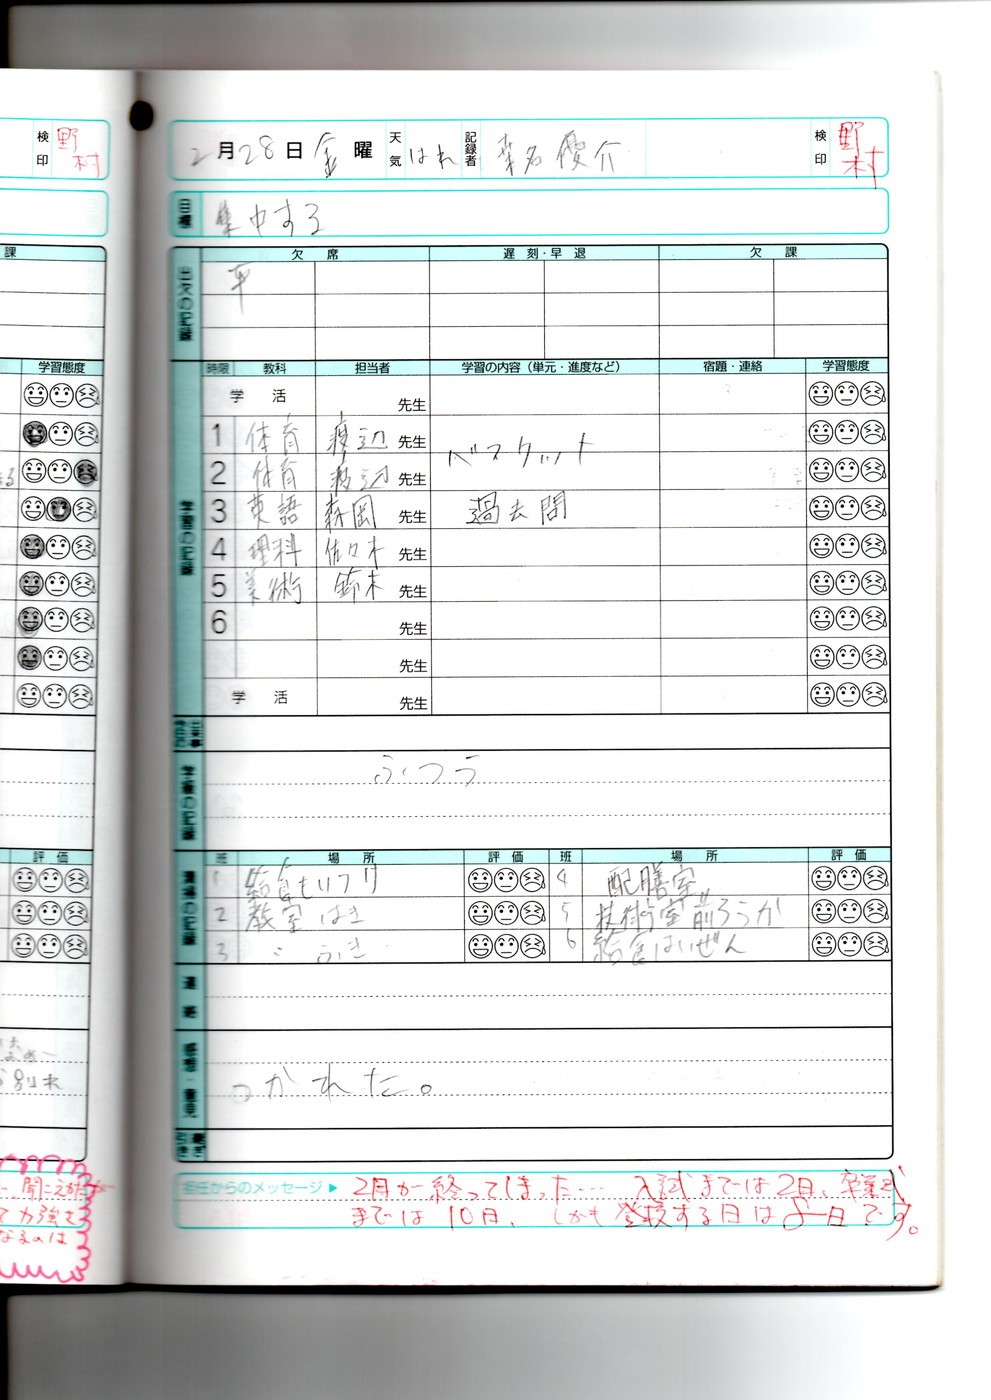 検印 野村
2月28日 金曜 天気 はれ 記録者 桑名優介 検印 野村
目標 集中する
課
出欠の記録 欠席 遅刻・早退 欠課
平
学習態度
学習の記録 時限 教科 担当者 学習の内容（単元・進度など） 宿題・連絡 学習態度
学活 先生
1 体育 渡辺 先生 バスケット
2 体育 渡辺 先生
3 英語 森岡 先生 過去問
4 理科 佐々木 先生
5 美術 鈴木 先生
6 先生
先生
学活 先生
ふつう
評価
班 場所 評価 班 場所 評価
1 給食もりつけ 4 配膳室
2 教室はき 5 技術室前ろうか
3 〃 ふき 6 給食はいぜん
連絡
感想・意見
つかれた。
引き継ぎ
担任からのメッセージ▶ 2月が終ってしまった… 入試までは2日、卒業式
までは10日、しかも登校する日は8日です。
なるのは